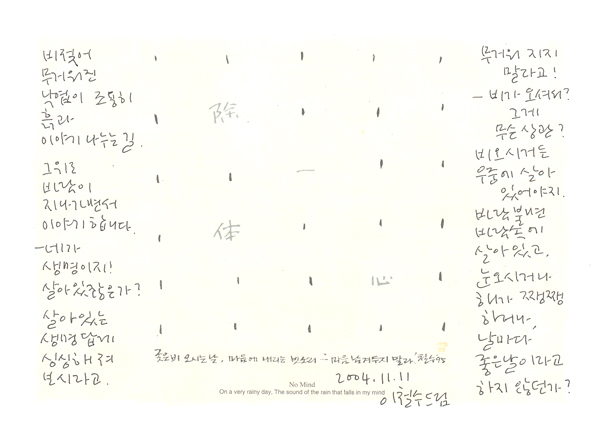 비젖어
무거워진
낙엽이 조용히
흙과
이야기 나누는 길.
그위로
바람이
지나가면서
이야기 합니다.
- 네가
생명이지!
살아있잖은가?
살아있는
생명답게
싱싱해 져
보시라고.
除
一
体
心
궂은비 오시는 날, 마음에 내리는 빗소리 - 마음
철수 95
No Mind
On a very rainy day, The sound of the rain that falls in my mind
2004.11.11
이철수드림
무거워 지지
말라고!
- 비가 오셔서?
그게
무슨 상관?
비오시거든
우중에 살아
있어야지.
바람불면
바람속에
살아있고,
눈오시거나
해가 쨍쨍
하거나,
날마다
좋은날이라고
하지 않던가?